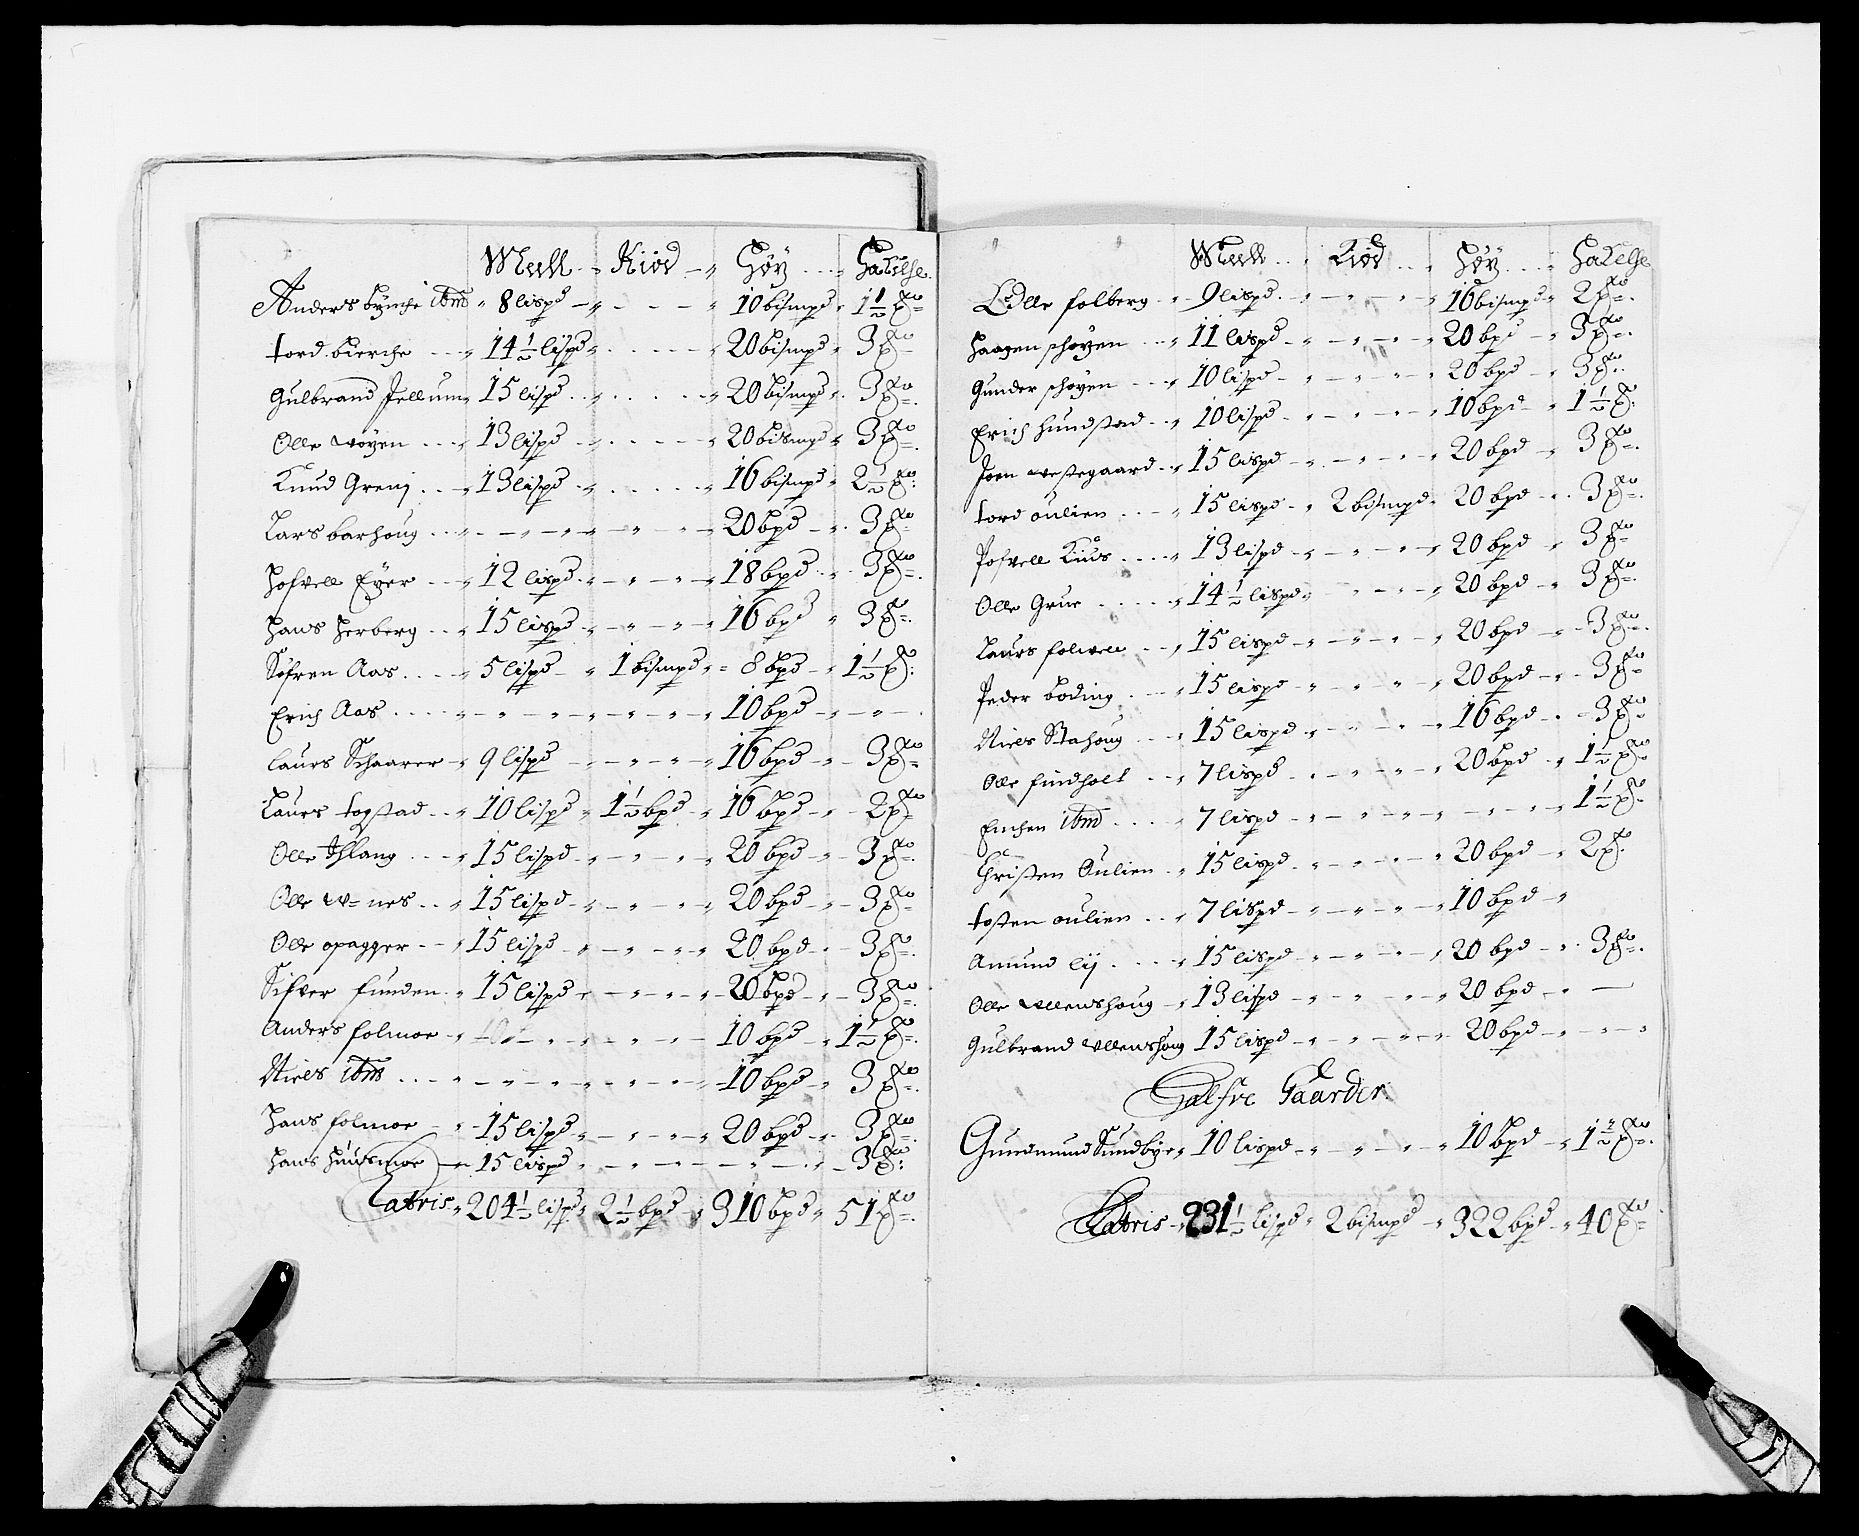 Meell Kiød Høy Hakelse
Anders ibm 8 lispd 10 bismpd 1½
tord bierche 14½ lispd 20 bismpd 3
Gulbrand Jellum 15 lispd 20 bismpd 3
Olle wøyen 13 lispd 20 bismpd 3
Knud Greni 13 lispd 16 bismpd 2½
Lars barhoug 20 bpd 3
Hofvell Eyer 12 lispd 18 bpd 3
Hans Herberg 15 lispd 16 bpd 3
Søfren Aas 5 lispd 1 bismpd 8 bpd 1½
Erich Aas 10 bpd
Laurs Schaarer 9 lispd 16 bpd 3
Laurs togstad 10 lispd 1½ bpd 16 bpd 2
Olle 15 lispd 20 bpd 3
Olle 15 lispd 20 bpd 3
Olle opagger 15 lispd 20 bpd 3
Sifver funden 15 lispd 20 bpd 3
Anders folmoe 10 bpd 1½
Niels ibm 10 bpd 3
Hans folmoe 15 lispd 20 bpd 3
Hans Huusmoe 15 lispd 3
Latris 204½ lispd 2½ bpd 310 bpd 51
Meell Kiød Høy Hakelse
Olle folberg 9 lispd 16 bismpd 2
Haagen schøyen 11 lispd 20 bpd 3
Gunder schøyen 10 lispd 20 bpd 3
Erich Hundstad 10 lispd 10 bpd 1½
Joen westegaard 15 lispd 20 bpd 3
tord oulien 15 lispd 2 bismpd 20 bpd 3
Pofvell Kius 13 lispd 20 bpd 3
Olle Grue 14½ lispd 20 bpd 3
Laurs 15 lispd 20 bpd 3
Peder bøding 15 lispd 20 bpd 3
Niels Stahoug 15 lispd 16 bpd 3
Olle findholt 7 lispd 20 bpd 1½
Enchen ibm 7 lispd 1½
Christen Oulien 15 lispd 20 bpd 2
tosten oulien 7 lispd 10 bpd
Amund lij 15 lispd 20 bpd 3
Olle Ullenshoug 13 lispd 20 bpd
Gulbrand Ullenshoug 15 lispd 20 bpd
Halfve Gaarder
Gundmund Sundbye 10 lispd 10 bpd 1½
Latris 231½ lispd 2 bismpd 322 bpd 40